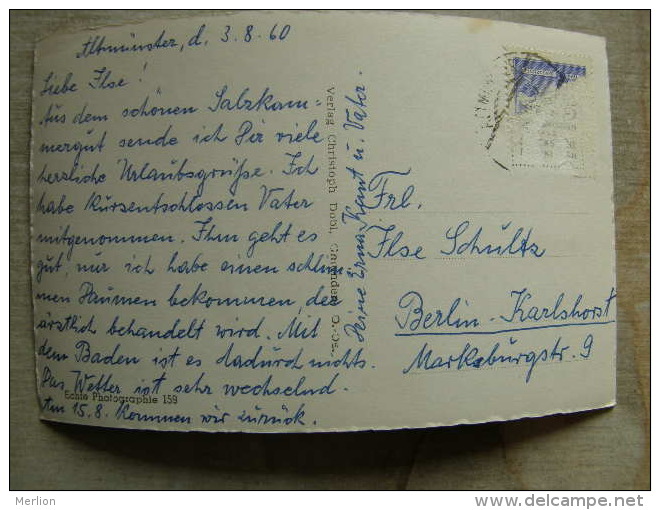 Altmünster, d. 3.8.60
Liebe Ilse!
Aus dem schönen Salzkam=
mergut sende ich Dir viele
herzliche Urlaubsgrüße. Ich
habe kurzentschlossen Vater
mitgenommen. Ihm geht es
gut, nur ich habe einen schlim-
men Daumen bekommen, der
ärztlich behandelt wird. Mit
dem Baden ist es dadurch nichts.
Das Wetter ist sehr wechselnd.
Am 15.8. kommen wir zurück.
Deine Erna u. Vater.
Echte Photographie 159
Verlag Christoph Gmunden
Frl.
Ilse Schultz
Berlin-Karlshorst
Marksburgstr. 9
Merlion
www.delcampe.net